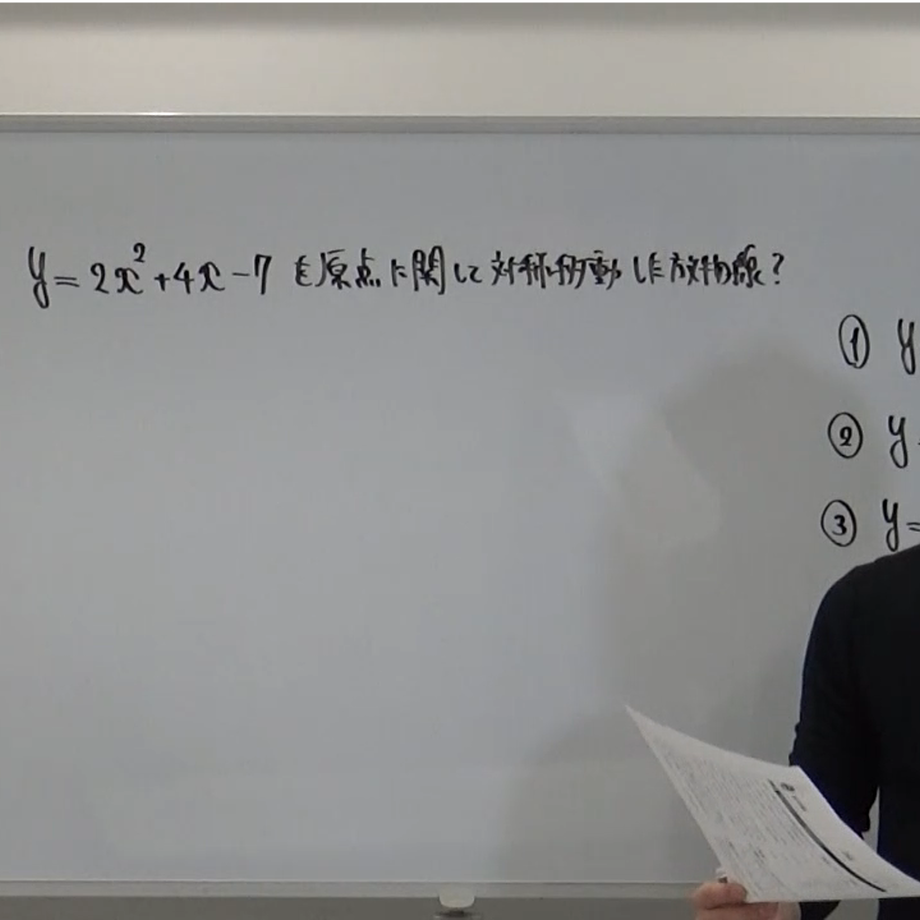 y = 2x² + 4x - 7 を原点に関して対称移動した放物線?
① y
② y
③ y =